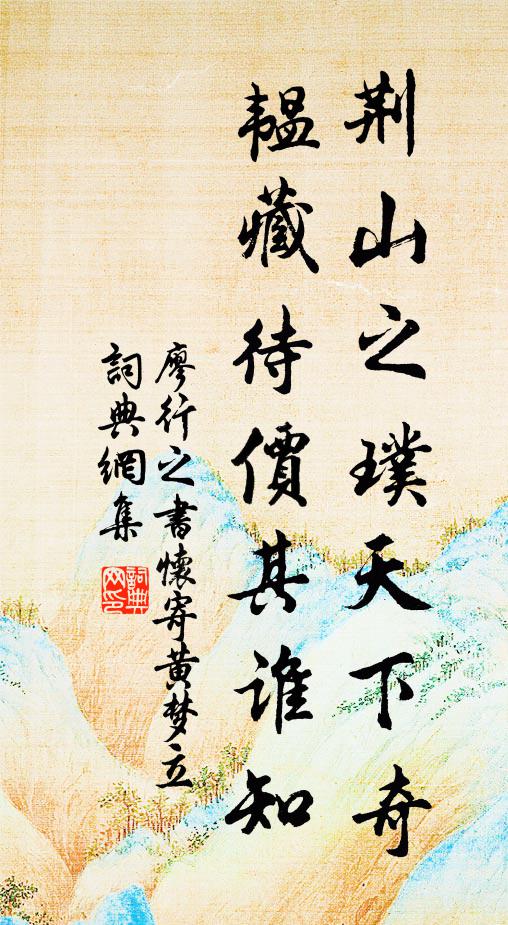 荆山之璞天下奇
韞藏待價其誰知
廖行之書懷寄黄梦立
詞典網集
詞典网印